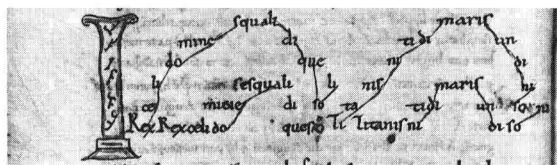 squali maris
mine di ti di un
do que ni di
li sesquali li nis maris ni
ce mine di so ta tidi un so ni
Rex Rex celi do queso Ti Titanis ni di so